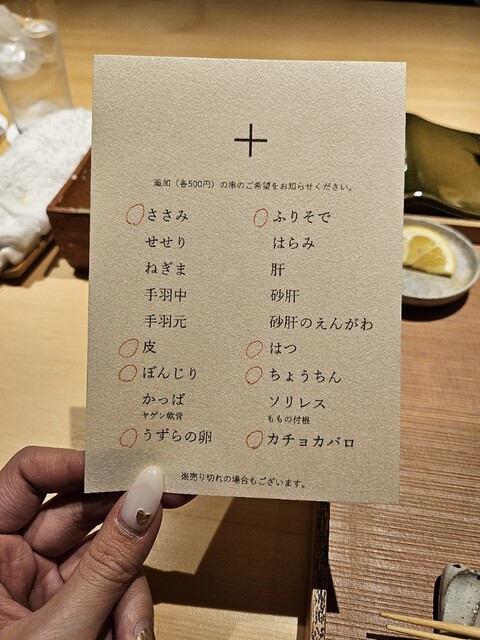 ＋
追加（各500円）の串のご希望をお知らせください。
ささみ
せせり
ねぎま
手羽中
手羽元
皮
ぼんじり
かっぱ
ヤゲン軟骨
うずらの卵
ふりそで
はらみ
肝
砂肝
砂肝のえんがわ
はつ
ちょうちん
ソリレス
ももの付根
カチョカバロ
※売り切れの場合もございます。